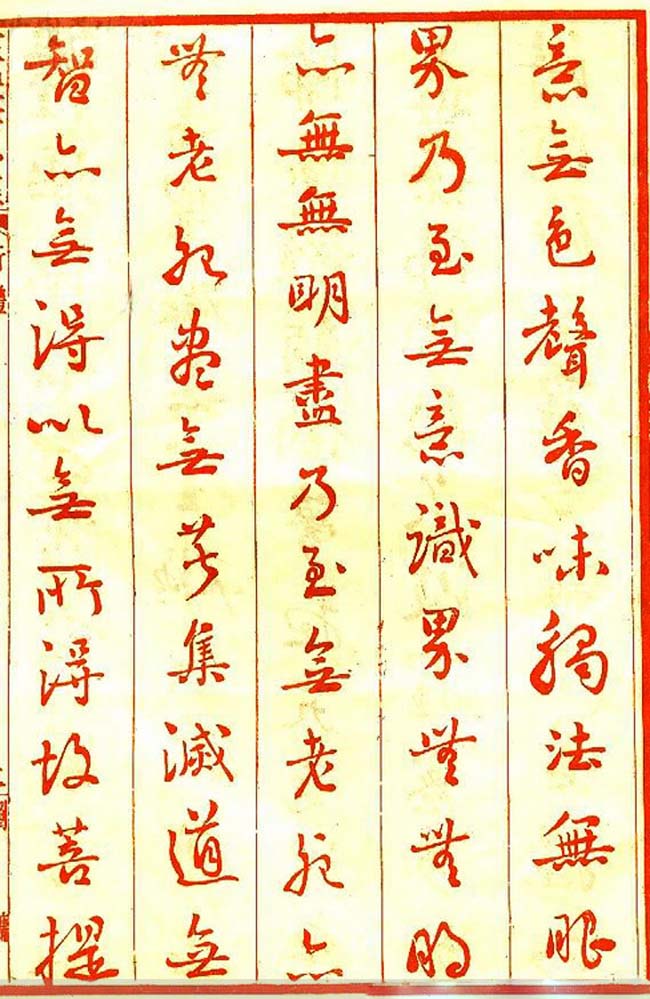 意無色聲香味觸法無眼
界乃至無意識界無無明
亦無無明盡乃至無老死亦
無老死盡無苦集滅道無
智亦無得以無所得故菩提